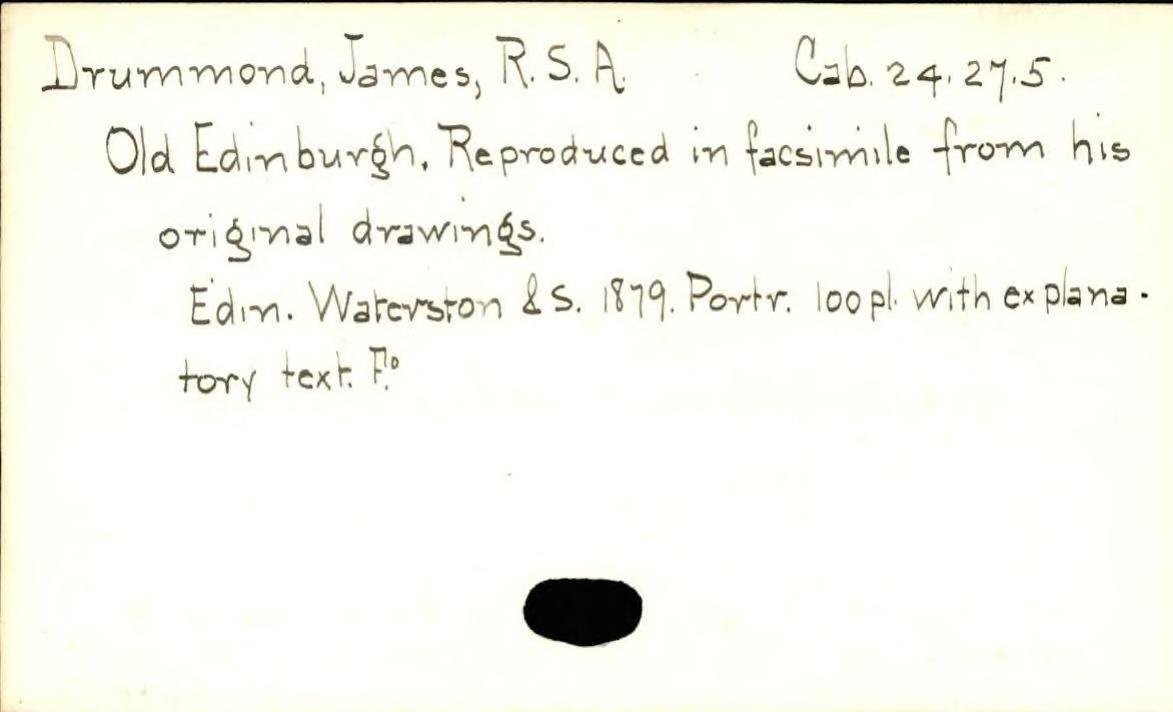 Drummond, James, R. S. A. Cab. 24. 27. 5.
Old Edinburgh. Reproduced in facsimile from his
original drawings.
Edin. Waterston & S. 1879. Portr. 100 pl. with explana-
tory text. F.º